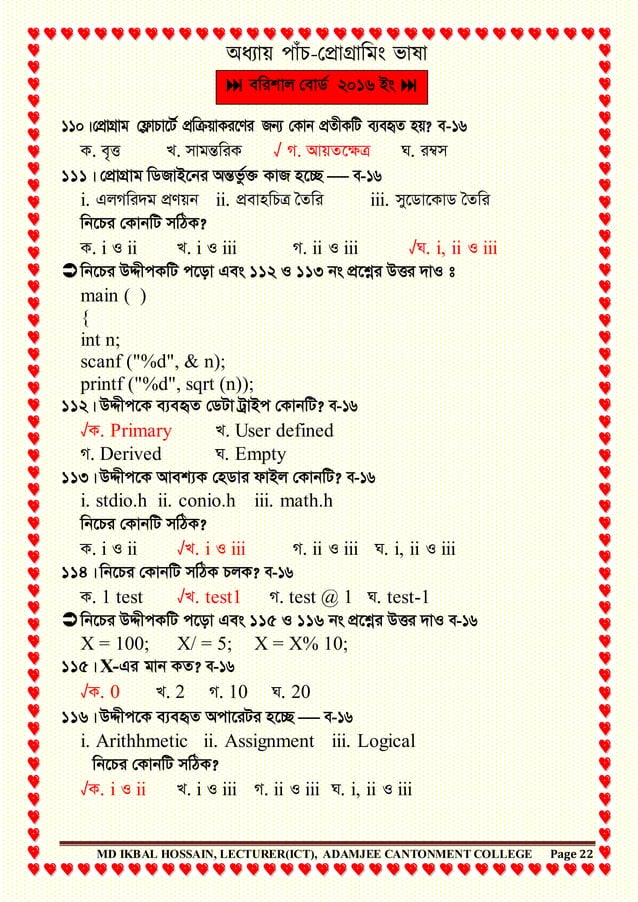 অধ্যায় পাঁচ-প্রোগ্রামিং ভাষা
বরিশাল বোর্ড ২০১৬ ইং
১১০। প্রোগ্রাম ফ্লোচার্টে প্রক্রিয়াকরণের জন্য কোন প্রতীকটি ব্যবহৃত হয়? ব-১৬
ক. বৃত্ত খ. সামন্তরিক √ গ. আয়তক্ষেত্র ঘ. রম্বস
১১১। প্রোগ্রাম ডিজাইনের অন্তর্ভুক্ত কাজ হচ্ছে — ব-১৬
i. এলগরিদম প্রণয়ন ii. প্রবাহচিত্র তৈরি iii. সুডোকোড তৈরি
নিচের কোনটি সঠিক?
ক. i ও ii খ. i ও iii গ. ii ও iii √ঘ. i, ii ও iii
➲ নিচের উদ্দীপকটি পড়ো এবং ১১২ ও ১১৩ নং প্রশ্নের উত্তর দাও ঃ
main ( )
{
int n;
scanf ("%d", & n);
printf ("%d", sqrt (n));
১১২। উদ্দীপকে ব্যবহৃত ডেটা ট্রাইপ কোনটি? ব-১৬
√ক. Primary খ. User defined
গ. Derived ঘ. Empty
১১৩। উদ্দীপকে আবশ্যক হেডার ফাইল কোনটি? ব-১৬
i. stdio.h ii. conio.h iii. math.h
নিচের কোনটি সঠিক?
ক. i ও ii √খ. i ও iii গ. ii ও iii ঘ. i, ii ও iii
১১৪। নিচের কোনটি সঠিক চলক? ব-১৬
ক. 1 test √খ. test1 গ. test @ 1 ঘ. test-1
➲ নিচের উদ্দীপকটি পড়ো এবং ১১৫ ও ১১৬ নং প্রশ্নের উত্তর দাও ব-১৬
X = 100; X/ = 5; X = X% 10;
১১৫। X-এর মান কত? ব-১৬
√ক. 0 খ. 2 গ. 10 ঘ. 20
১১৬। উদ্দীপকে ব্যবহৃত অপারেটর হচ্ছে — ব-১৬
i. Arithhmetic ii. Assignment iii. Logical
নিচের কোনটি সঠিক?
√ক. i ও ii খ. i ও iii গ. ii ও iii ঘ. i, ii ও iii
MD IKBAL HOSSAIN, LECTURER(ICT), ADAMJEE CANTONMENT COLLEGE Page 22